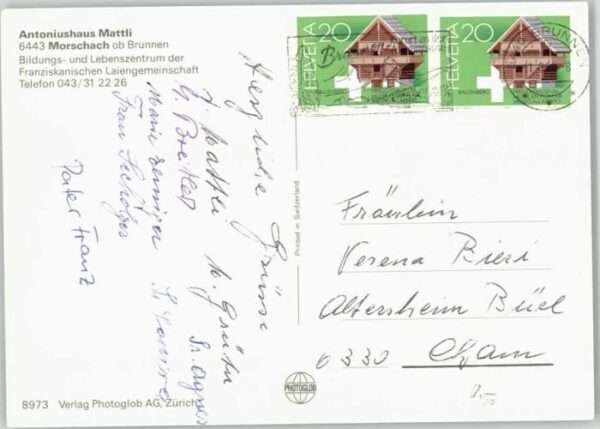 Antoniushaus Mattli
6443 Morschach ob Brunnen
Bildungs- und Lebenszentrum der
Franziskanischen Laiengemeinschaft
Telefon 043/31 22 26
HELVETIA 20
BALLENBERG
HELVETIA 20
BALLENBERG
BRUNNEN
Herzliche Grüsse
J. Mattli M. Grüter
G. Breitler Sr. Agnes
Marie
Frau
Pater Franz
Printed in Switzerland
Fräulein
Verena Rieri
Altersheim Büel
6330 Cham
PHOTOGLOB
8973 Verlag Photoglob AG, Zürich